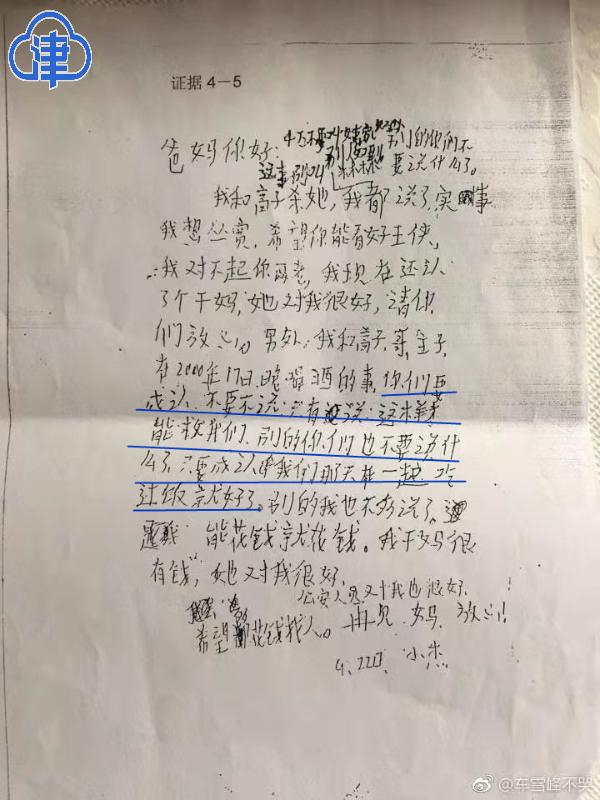 津
证据 4－5
爸妈你好: 4万不要叫 别的他们不
这事 别叫 林林 要说什么了。
我和高子杀她,我都说了实事
我想从宽,希望你能看好王侠,
我对不起你二老,我现在还认
了个干妈,她对我很好,请你
们放心。另外:我和高子
在2000年17日晚 喝酒的事,你们要
成认,不要不说,只有说,这样才
能救我们,别的你们也不要说什
么了,只要成认 我们那天在一起吃
过饭就好了。别的我也不多说了,
能花钱就花钱。我干妈很
有钱,她又对我很好,
公安人员又对我也很好.
希望 花钱找人。再见 妈 放心!
4.22日 小杰
@车雪峰不哭